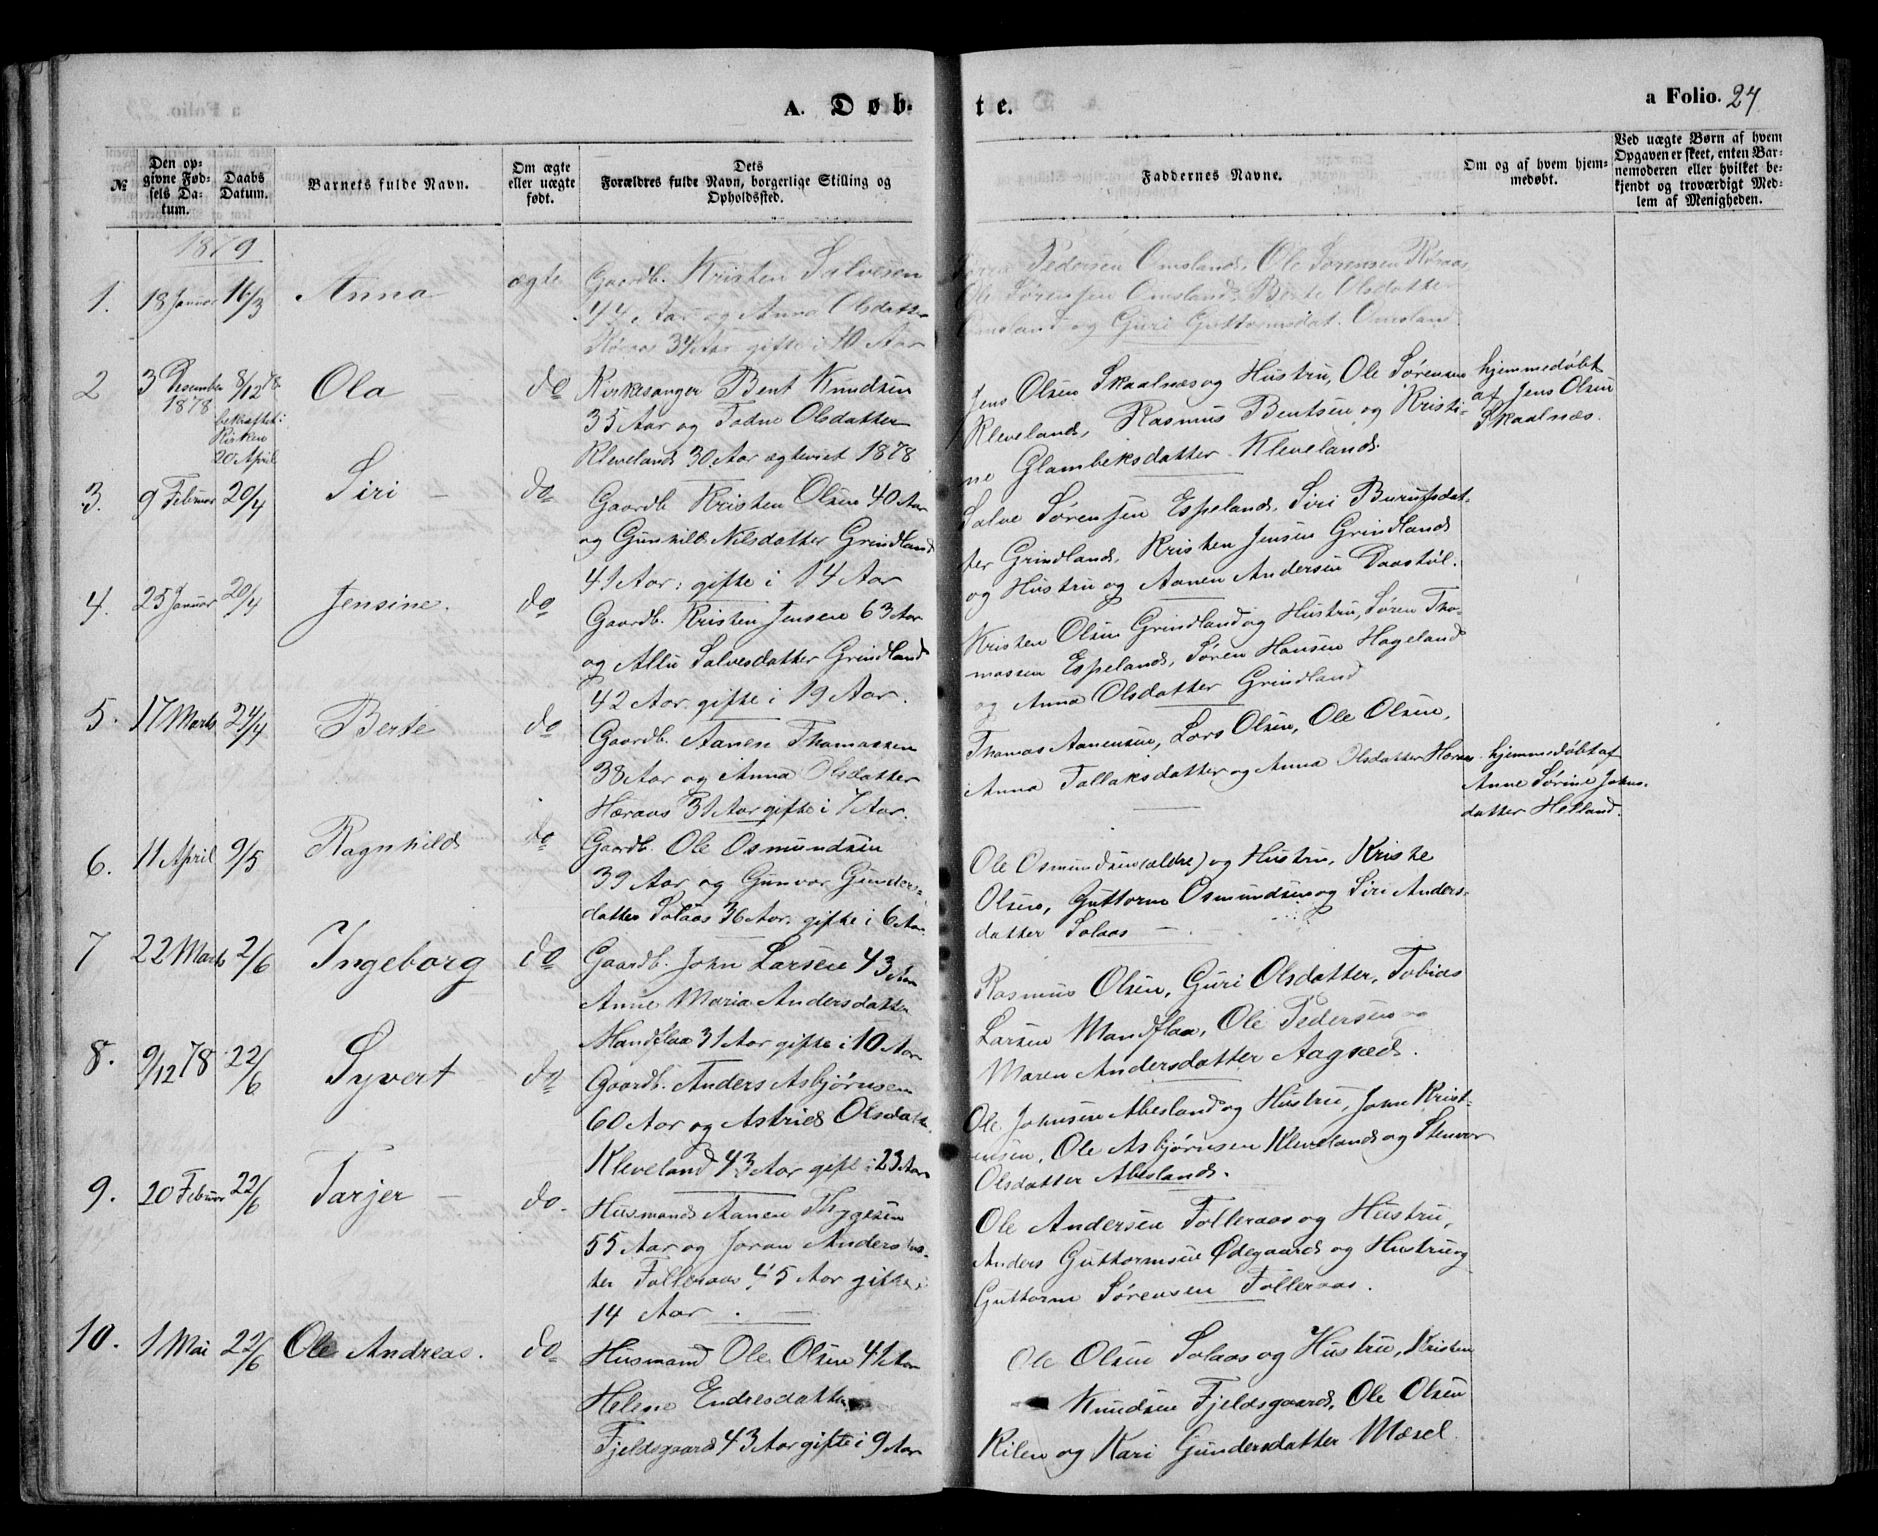 A. Døbte.
a Folio. 24
№
Den opgivne Fødsels Datum.
Daabs Datum.
Barnets fulde Navn.
Om ægte eller uægte født.
Dets Forældres fulde Navn, borgerlige Stilling og Opholdssted.
Faddernes Navne.
Om og af hvem hjemmedøbt.
Ved uægte Børn af hvem Opgaven er skeet, enten Barnemoderen eller hvilket bekjendt og troværdigt Medlem af Menigheden.
1879
1. 18 Januar 16/3 Anna ægte
Gaardb. Kristen Salvesen
44 Aar og Anna Olsdatter
34 Aar gifte i 10 Aar
Pedersen Omsland, Ole Sørensen
Ole Sørensen Omsland, Berte Olsdatter
Omsland og Guri Guttormsdat. Omsland
2 3 Desember 1878 8/12 78 Ola do
bekræftet i
Kirken
20 April
Kirkesanger Bent Knudsen
35 Aar og Todne Olsdatter
Kleveland 30 Aar ægteviet 1878
Jens Olsen Skaalnæs og Hustru, Ole Sørensen
Kleveland, Rasmus Bentsen og Kristi-
ne Glambeksdatter Kleveland.
hjemmedøbt
af Jens Olsen
Skaalnæs.
3. 9 Februar 20/4 Siri – do
Gaardb Kristen Olsen 40 Aar
og Gunhild Nilsdatter Grindland
41 Aar: gifte i 14 Aar
Salve Sørensen Espeland, Siri Burufsdat-
ter Grindland, Kristen Jensen Grindland
og Hustru og Aanen Andersen Daastøl.
4. 25 Januar 20/4 Jensine. do
Gaardb. Kristen Jensen 63 Aar
og Allu Salvesdatter Grindland
42 Aar gifte i 19 Aar.
Kristen Olsen Grindland og Hustru, Søren Tho-
massen Espeland, Søren Hansen Hageland
og Anna Olsdatter Grindland
5. 17 Marts 24/4 Berte do
Gaardb. Aanen Thomassen
38 Aar og Anna Olsdatter
Høraas 31 Aar gifte i 7 Aar.
Thomas Aanensen, Lars Olsen, Ole Olsen,
Anna Tallaksdatter og Anna Olsdatter Høraas
hjemmedøbt af
Anne Sørine Johns-
datter Helland.
6. 11 April 9/5 Ragnhild do
Gaardb. Ole Osmundsen
39 Aar og Gunvor Gunders-
datter Solaas 36 Aar. gifte i 6 Aar
Ole Osmundsen (ældre) og Hustru, Kriste
Olsen, Guttorm Osmundsen og Siri Anders-
datter Solaas – .
7 22 Marts 2/6 Ingeborg do
Gaardb. John Larsen 43 Aar
Anne Maria Andersdatter
Mandflaa 31 Aar gifte i 10 Aar
Rasmus Olsen, Guri Olsdatter, Tobias
Larsen Mandflaa, Ole Pedersen og
Maren Andersdatter Aagsæd.
8. 9/12 78 22/6 Syvert do
Gaardb. Anders Asbjørnsen
60 Aar og Astrid Olsdatter
Kleveland 43 Aar gift i 23 Aar
Ole Johnsen Abesland og Hustru, John Krist-
ensen, Ole Asbjørnsen Kleveland og Stenvor
Olsdatter Abesland.
9. 20 Februar 22/6 Tarjer – do.
Husmand Aanen Thygesen
55 Aar og Joran Andersdat-
ter Folleraas 45 Aar gifte i
14 Aar .
Ole Andersen Folleraas og Hustru,
Anders Guttormsen Ødegaard og Hustru og
Guttorm Sørensen Folleraas.
10. 1 Mai 22/6 Ole Andreas. do
Husmand Ole Olsen 41 Aar
Helene Endresdatter
Fjeldsgaard 43 Aar gifte i 9 Aar
Ole Olsen Solaas og Hustru, Kristen
Knudsen Fjeldsgaard, Ole Olsen
Kilen og Kari Gundersdatter Mæsel.